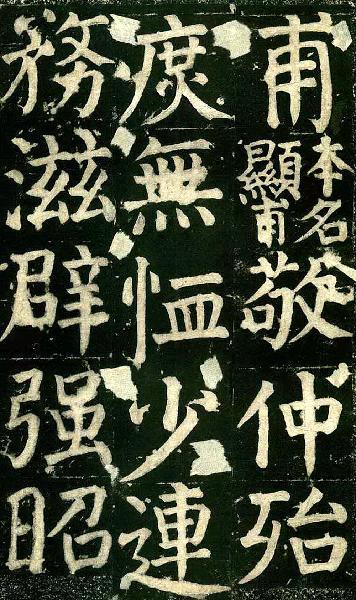 甫本名顯甫敬仲殆
庶無恤少連
務滋辟强昭